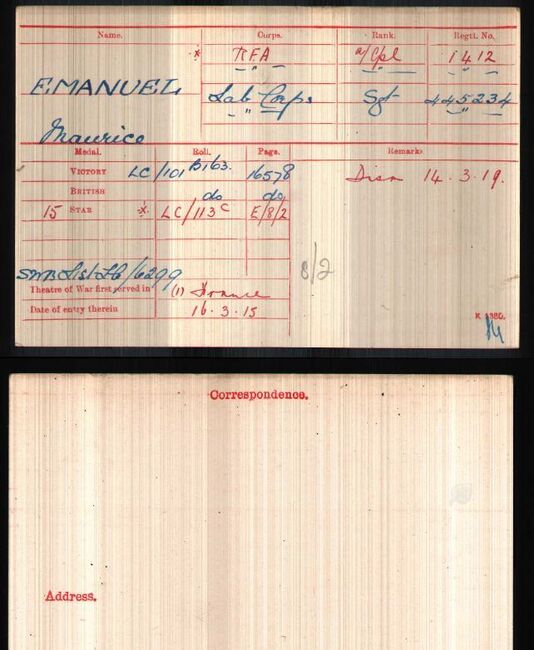 Name. Corps. Rank. Regtl. No.
* RFA a/Cpl 1412
EMANUEL Lab Corps Sgt 445234
" " " "
Maurice
Medal. Roll. Page. Remarks
VICTORY LC/101 B163. 16578 Disn 14.3.19.
BRITISH do do
15 STAR * LC/113C E/8/2
8/2
SWB List LC/6299
Theatre of War first served in (1) France
Date of entry therein 16.3.15
K 1380.
Correspondence.
Address.